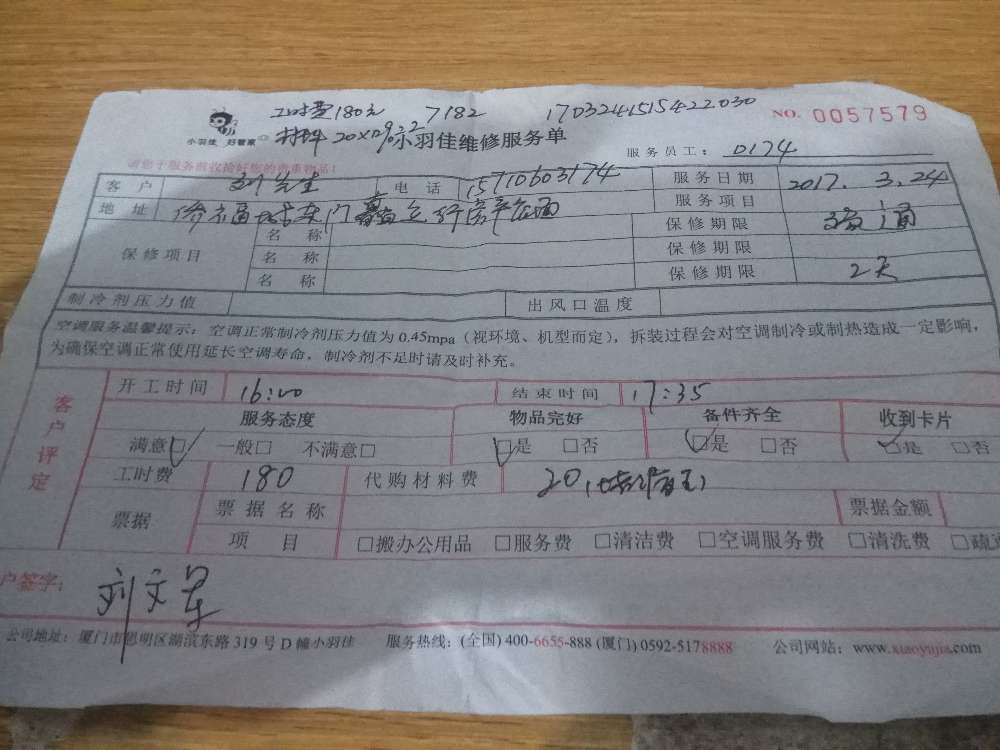 工时费180元 7182 1703241515422030
NO. 0057579
材料20
小羽佳 好管家
小羽佳维修服务单
服务员工: 0174
请您于服务前收拾好您的贵重物品!
客户 刘先生 电话 15710603174 服务日期 2017.3.24
地址 服务项目
保修项目 名称 保修期限
名称 保修期限
名称 保修期限 2天
制冷剂压力值 出风口温度
空调服务温馨提示:空调正常制冷剂压力值为0.45mpa(视环境、机型而定),拆装过程会对空调制冷或制热造成一定影响,
为确保空调正常使用延长空调寿命,制冷剂不足时请及时补充。
客户评定
开工时间 16:00 结束时间 17:35
服务态度 物品完好 备件齐全 收到卡片
满意□ 一般□ 不满意□ □是 □否 □是 □否 □是 □否
工时费 180 代购材料费 20
票据 票据名称 票据金额
项目 □搬办公用品 □服务费 □清洁费 □空调服务费 □清洗费 □疏
户签字: 刘文军
公司地址:厦门市思明区湖滨东路319号D幢小羽佳 服务热线:(全国)400-6655-888 (厦门)0592-5178888 公司网站:www.xiaoyujia.com